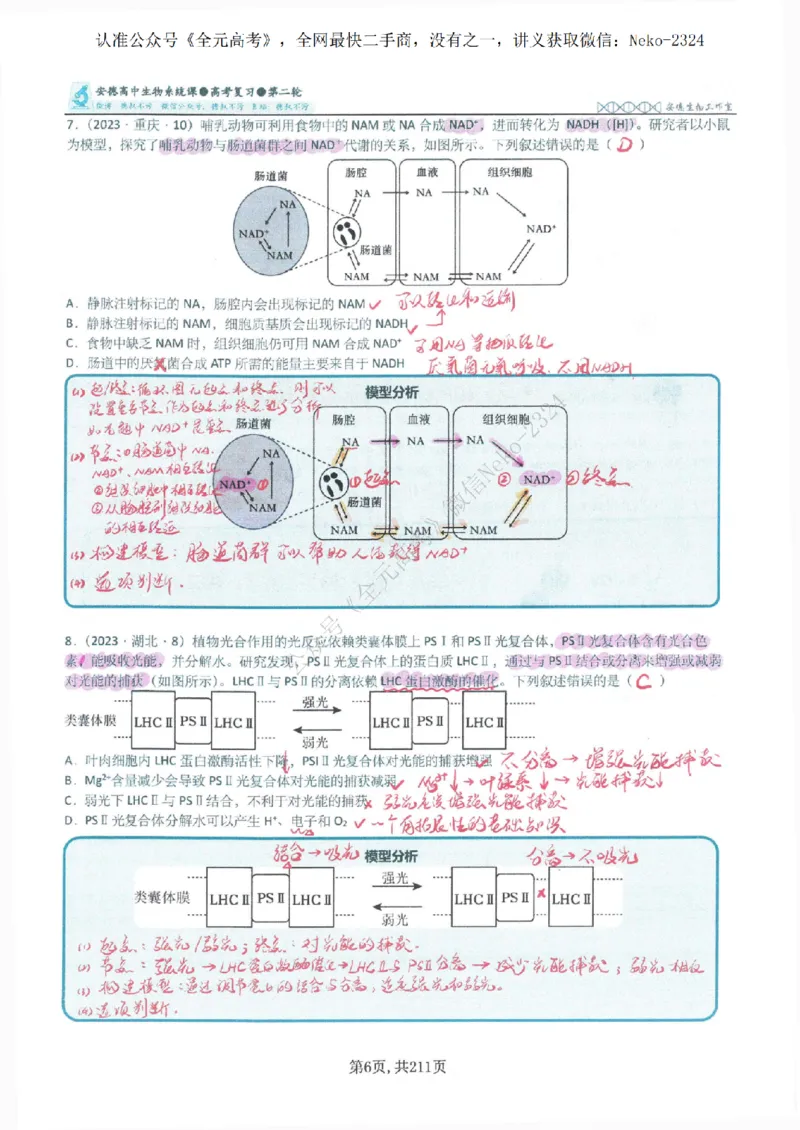 认准公众号《全元高考》，全网最快二手商，没有之一，讲义获取微信：Neko-2324
安德高中生物系统课●高考复习●第二轮
安德生物工作室
7.（2023·重庆·10）哺乳动物可利用食物中的 NAM 或 NA 合成 NAD⁺，进而转化为 NADH（[H]）。研究者以小鼠
为模型，探究了哺乳动物与肠道菌群之间 NAD⁺代谢的关系，如图所示。下列叙述错误的是（ D ）
肠道菌 肠腔 血液 组织细胞
NA NA NA NA
NAD⁺ NAD⁺
肠道菌
NAM NAM NAM NAM
A．静脉注射标记的 NA，肠腔内会出现标记的 NAM ✓ 可以转化和运输
B．静脉注射标记的 NAM，细胞质基质会出现标记的 NADH ✓
C．食物中缺乏 NAM 时，组织细胞仍可用 NAM 合成 NAD⁺ 可用NA等物质转化
D．肠道中的厌氧菌合成 ATP 所需的能量主要来自于 NADH 厌氧菌无氧呼吸，不用NADH
模型分析
(1) 起/终点：循环图无起点和终点，则可以
设置重要节点作为起点和终点进行分析
如无题中 NAD⁺是重点
(2) 节点：①肠道菌中 NA、
NAD⁺、NAM相互转化
②组织细胞中相互转化
③从肠腔到组织细胞
的相互转运
肠道菌 肠腔 血液 组织细胞
NA NA NA NA
NAD⁺ ① ①起点 ② NAD⁺ ②终点
肠道菌
NAM NAM NAM NAM
(3) 构建模型：肠道菌群可以帮助人体获得NAD⁺
(4) 选项判断．
8.（2023·湖北·8）植物光合作用的光反应依赖类囊体膜上 PSⅠ和 PSⅡ光复合体，PSⅡ光复合体含有光合色
素，能吸收光能，并分解水。研究发现，PSⅡ光复合体上的蛋白质 LHCⅡ，通过与 PSⅡ结合或分离来增强或减弱
对光能的捕获（如图所示）。LHCⅡ与 PSⅡ的分离依赖 LHC 蛋白激酶的催化。下列叙述错误的是（ C ）
类囊体膜 LHCⅡ PSⅡ LHCⅡ 强光 弱光 LHCⅡ PSⅡ LHCⅡ
A．叶肉细胞内 LHC 蛋白激酶活性下降，PSⅡ光复合体对光能的捕获增强 ✓ 不分离→增强光能捕获
B．Mg²⁺含量减少会导致 PSⅡ光复合体对光能的捕获减弱 ✓ Mg²⁺↓→叶绿素↓→光能捕获↓
C．弱光下 LHCⅡ与 PSⅡ结合，不利于对光能的捕获 × 弱光应该增强光能捕获
D．PSⅡ光复合体分解水可以产生 H⁺、电子和 O₂ ✓ 一个有拓展性的基础知识
结合→吸光 模型分析 分离→不吸光
类囊体膜 LHCⅡ PSⅡ LHCⅡ 强光 弱光 LHCⅡ PSⅡ × LHCⅡ
(1) 起点：强光/弱光；终点：对光能的捕获．
(2) 节点：强光→LHC蛋白激酶催化→LHCⅡ与PSⅡ分离→减少光能捕获；弱光相反
(3) 构建模型：通过调节蛋白的结合与分离，适应强光和弱光。
(4) 选项判断．
第6页，共211页